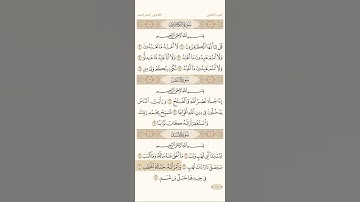 سُورَةُ الكَافِرُونَ
بِسْمِ اللَّهِ الرَّحْمَٰنِ الرَّحِيمِ
قُلْ يَا أَيُّهَا الْكَافِرُونَ ١ لَا أَعْبُدُ مَا تَعْبُدُونَ ٢
وَلَا أَنْتُمْ عَابِدُونَ مَا أَعْبُدُ ٣ وَلَا أَنَا عَابِدٌ مَا عَبَدْتُمْ ٤
وَلَا أَنْتُمْ عَابِدُونَ مَا أَعْبُدُ ٥ لَكُمْ دِينُكُمْ وَلِيَ دِينِ ٦
سُورَةُ النَّصْرِ
بِسْمِ اللَّهِ الرَّحْمَٰنِ الرَّحِيمِ
إِذَا جَاءَ نَصْرُ اللَّهِ وَالْفَتْحُ ١ وَرَأَيْتَ النَّاسَ
يَدْخُلُونَ فِي دِينِ اللَّهِ أَفْوَاجًا ٢ فَسَبِّحْ بِحَمْدِ رَبِّكَ
وَاسْتَغْفِرْهُ إِنَّهُ كَانَ تَوَّابًا ٣
سُورَةُ المَسَدِ
بِسْمِ اللَّهِ الرَّحْمَٰنِ الرَّحِيمِ
تَبَّتْ يَدَا أَبِي لَهَبٍ وَتَبَّ ١ مَا أَغْنَىٰ عَنْهُ مَالُهُ وَمَا كَسَبَ ٢
سَيَصْلَىٰ نَارًا ذَاتَ لَهَبٍ ٣ وَامْرَأَتُهُ حَمَّالَةَ الْحَطَبِ ٤
فِي جِيدِهَا حَبْلٌ مِنْ مَسَدٍ ٥